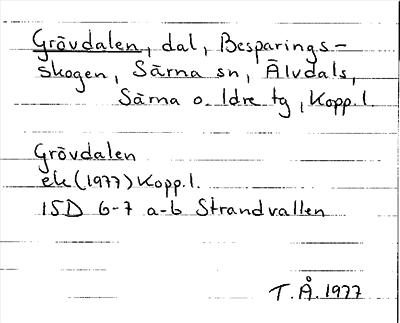 Grövdalen, dal, Besparings-
skogen, Särna sn, Älvdals,
Särna o. Idre tg, Kopp.l.
Grövdalen
ek (1977) Kopp.l.
15D 6-7 a-b Strandvallen
T.Å. 1977